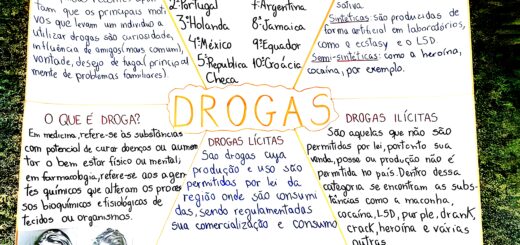 tam que os principais moti
vos que levam um individuo a
utilizar drogas são curiosidade,
influência de amigos (mais comum),
vontade, desejo de fuga (principal
mente de problemas familiares).
2º Portugal
3º Holanda
4º México
5º Republica
Checa
7º Argentina
8º Jamaica
9º Equador
10º Croácia
sativa.
Sintéticas: são produzidas de
forma artificial em laboratórios,
como o ecstasy e o LSD.
Semi-sintéticas: como a heroína,
cocaína, por exemplo.
DROGAS
O QUE É DROGA?
Em medicina, refere-se às substâncias
com potencial de curar doenças ou aumen
tar o bem estar físico ou mental;
em farmacologia, refere-se aos agen
tes químicos que alteram os proces
sos bioquímicos e fisiológicos de
tecidos ou organismos.
DROGAS LÍCITAS
São drogas cuja
produção e uso são
permitidas por lei da
região onde são consumi
das, sendo regulamentadas
sua comercialização e consumo
DROGAS ILÍCITAS
São aquelas que não são
permitidas por lei, portanto sua
venda, posse ou produção não é
permitida no país. Dentro dessa
categoria se encontram as subs-
tâncias como a maconha,
cocaína, LSD, purple, drank,
crack, heroína e várias
outras